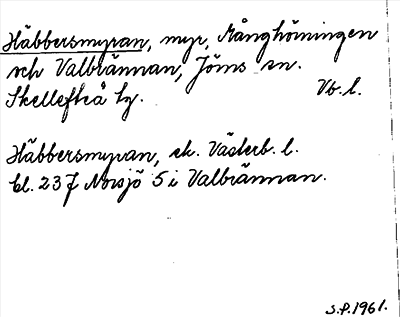 Häbbersmyran, myr, Månghörningen
och Valbrännan, Jörns sn.
Skellefteå hg. Vb. l.
Häbbersmyran, ek. Västerb. l.
bl. 237 Norsjö 5 i Valbrännan.
S.P. 1961.